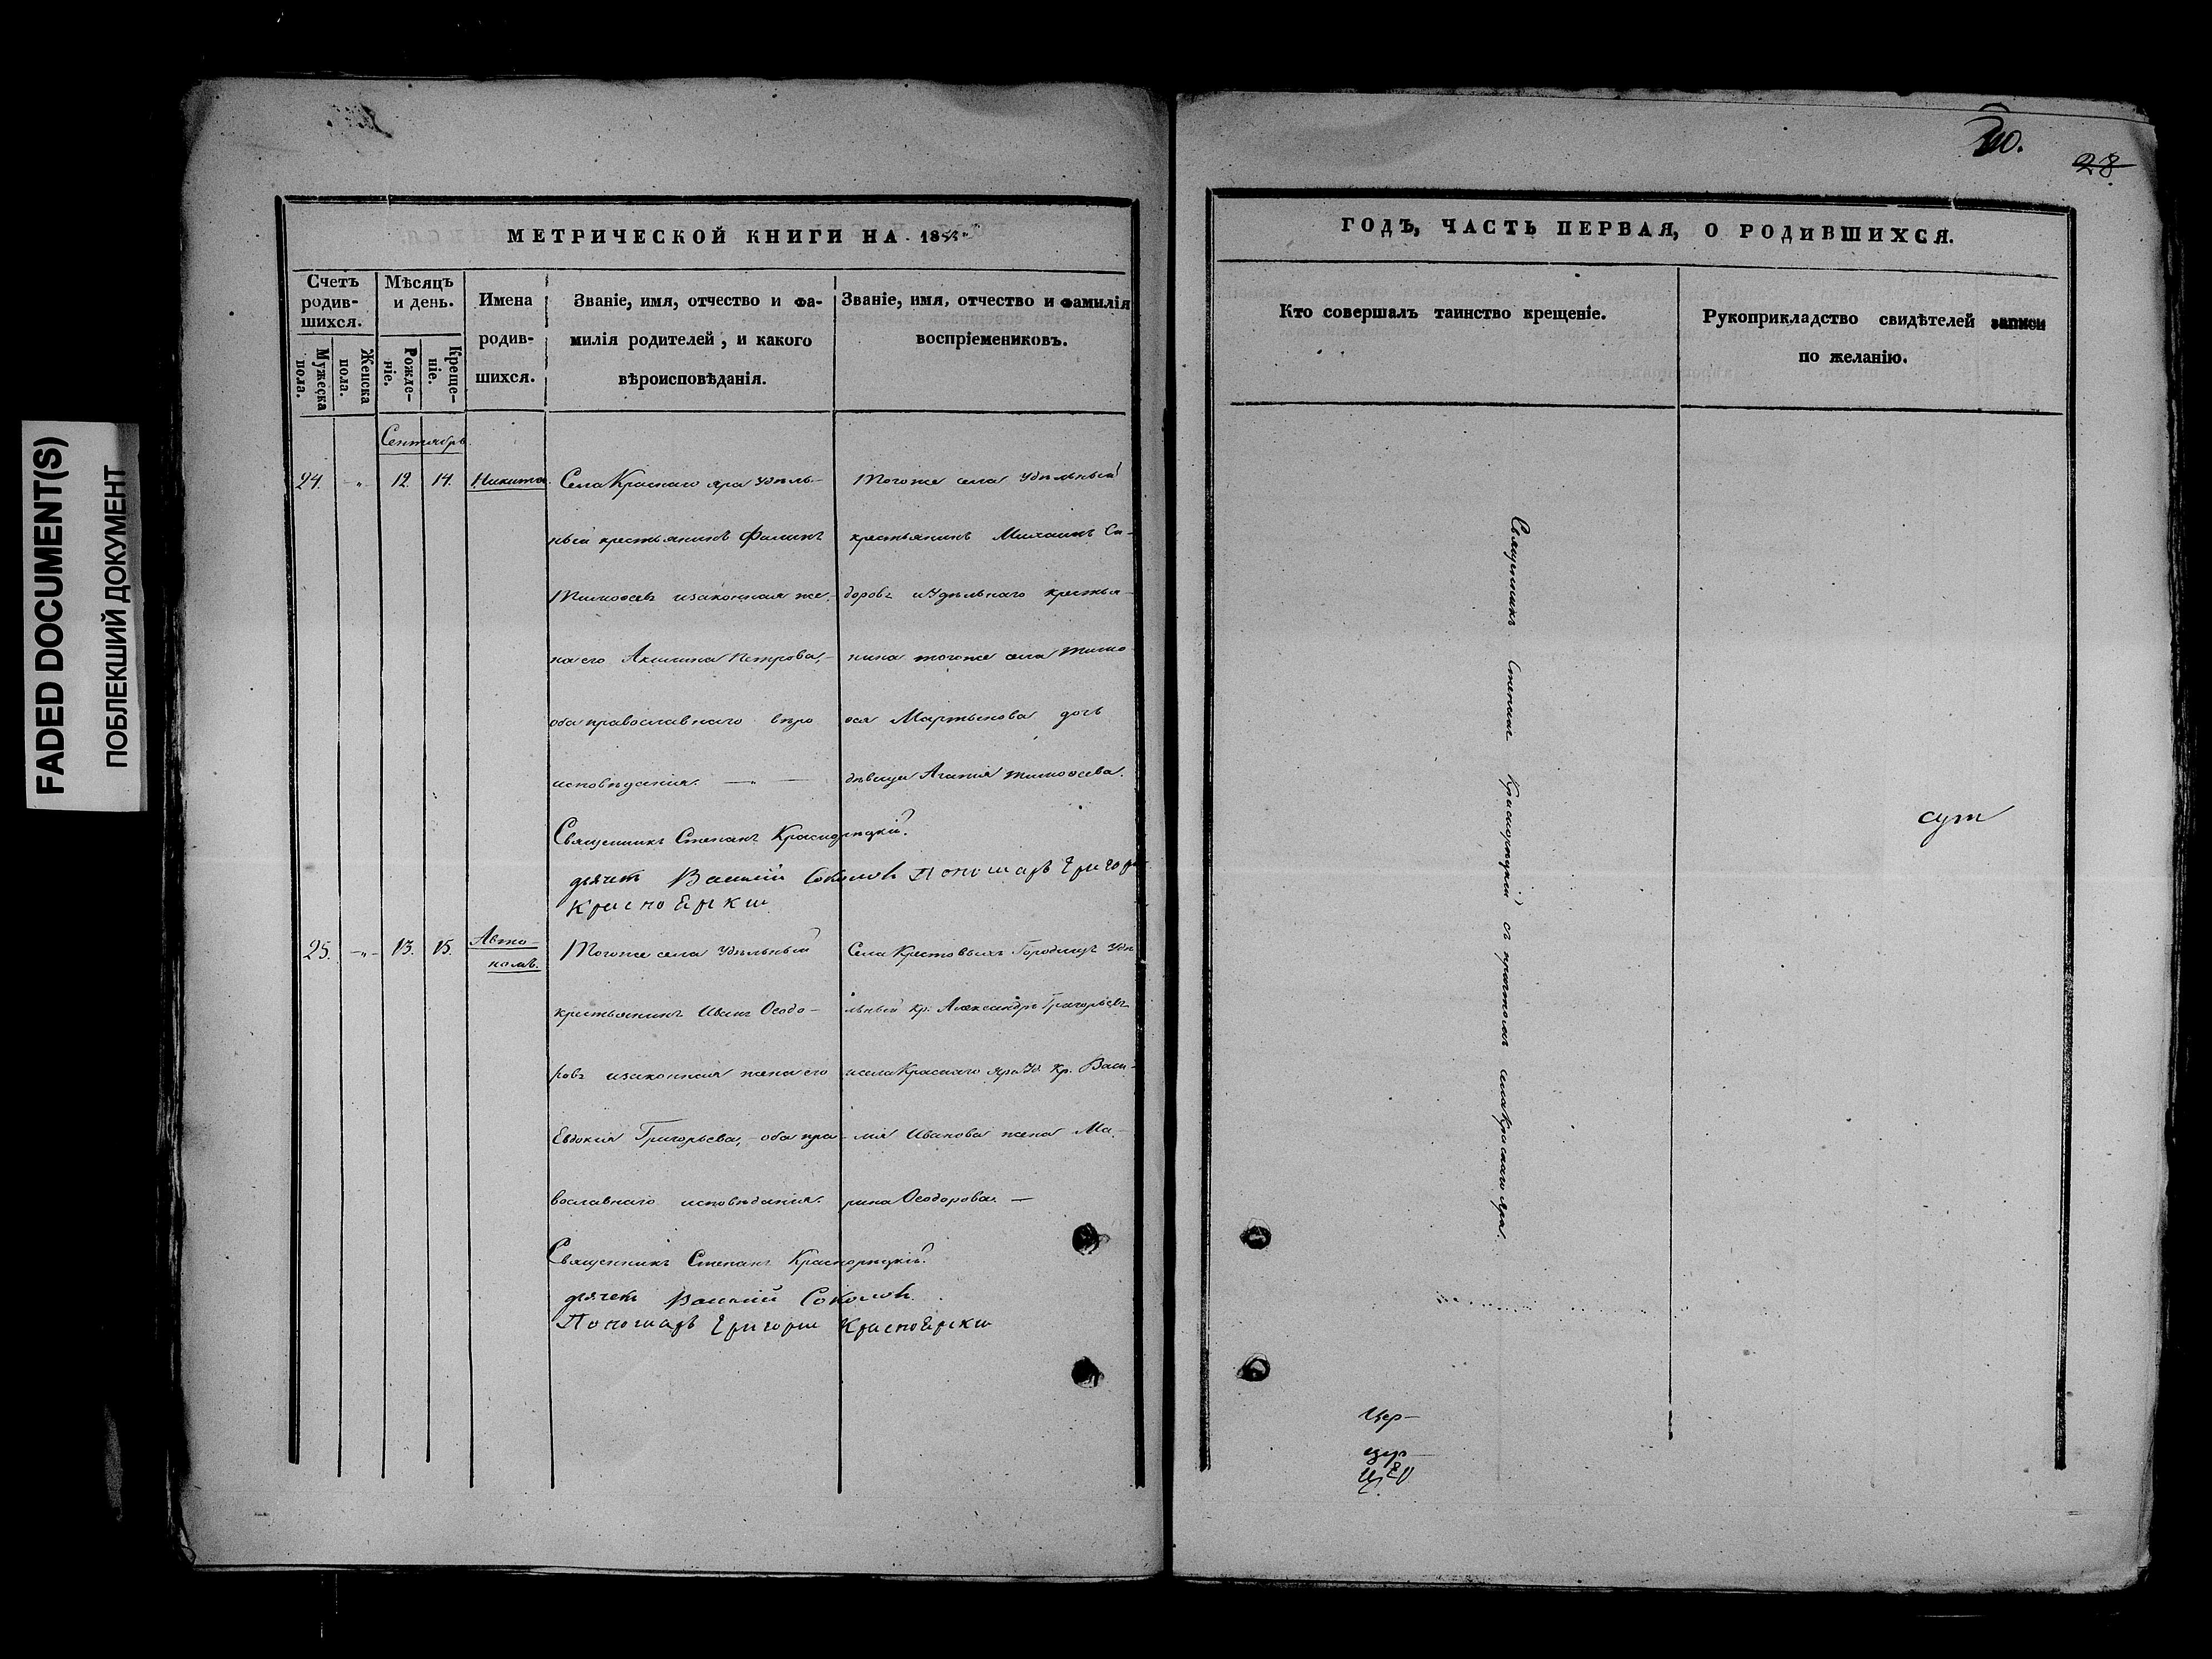 FADED DOCUMENT(S)
ПОБЛЕКШИЙ ДОКУМЕНТ
МЕТРИЧЕСКОЙ КНИГИ НА 18
Счетъ родив-шихся.
Мужеска пола.
Женска пола.
Мѣсяцъ и день.
Рожде-ніе.
Креще-ніе.
Имена родив-шихся.
Званіе, имя, отчество и фа-
милія родителей, и какого
вѣроисповѣданія.
Званіе, имя, отчество и фамилія
воспріемениковъ.
Сентябрь
24. " 12. 14. Никита.
Села Краснаго яра удѣль-
ный крестьянинъ
Тимоѳеевъ изаконная же-
на его Акилина Петрова,
оба православнаго вѣро
исповѣданія.
Тогоже села Удѣльный
крестьянинъ Михаилъ Си-
доровъ иУдѣльнаго крестья-
нина тогоже села Тимо
ѳея Мартынова дочь
дѣвица Агапія Тимоѳеева.
Священникъ Степанъ Краснорѣцкій.
дячекъ Василій Соколовъ Пономарь Григори
КрасноЯрки
25. " 13. 15. Авто-
номъ.
Тогоже села Удѣльный
крестьянинъ Иванъ Ѳеодо-
ровъ изаконная жена его
Евдокія Григорьева, - оба пра-
вославнаго исповѣданія.
Села Крестовыхъ Городищъ Удѣ
льный кр. Александръ Григорьевъ
исела Краснаго яра Уд. Кр. Васи-
лія Иванова жена Ма-
рина Ѳеодорова.
Священникъ Степанъ Краснорѣцкій.
дячекъ Василій Соколовъ.
Пономарь Григори КрасноЯрки
28
ГОДЪ, ЧАСТЬ ПЕРВАЯ, О РОДИВШИХСЯ.
Кто совершалъ таинство крещеніе.
Рукоприкладство свидѣтелей записи
по желанію.
Священникъ Степанъ Краснорѣцкій съ причтомъ села Краснаго яра.